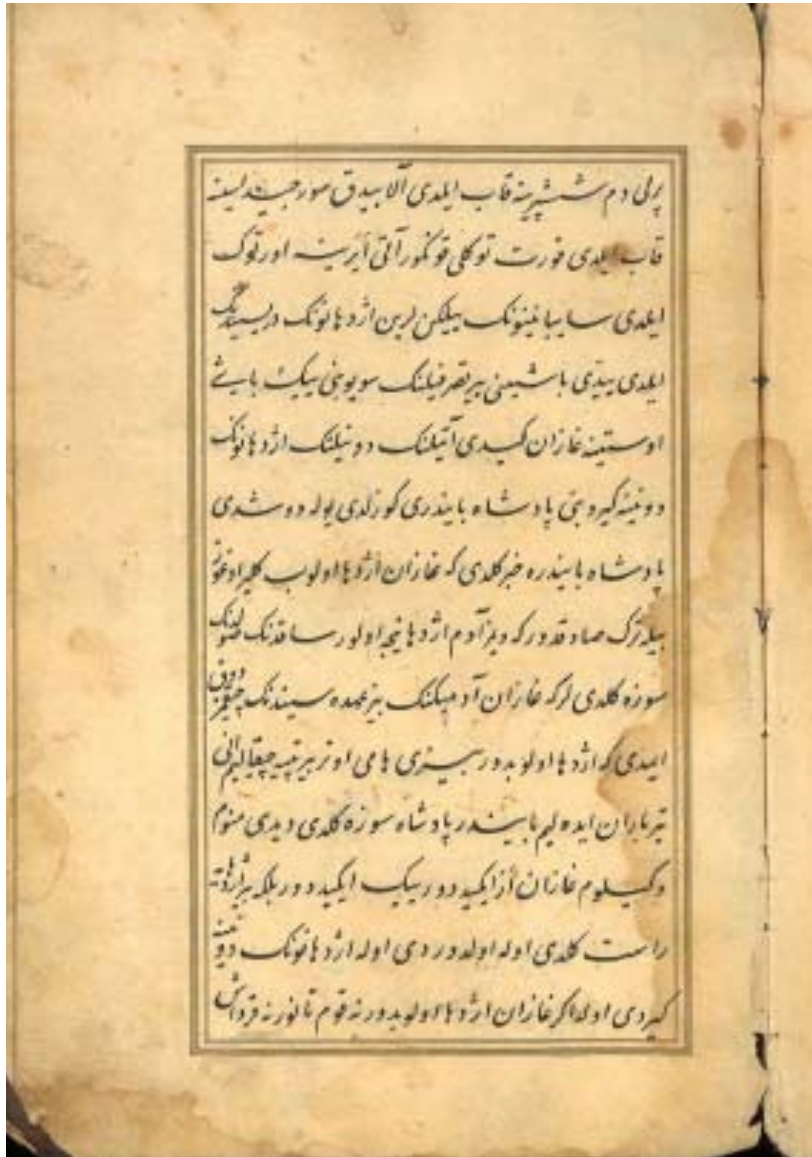 برلی دم ششپرینه قاب ایلدی آلا بیدق سورجیدﻪ لسینه
قاب ایلدی قورت توکلی قوکمور آلتی آیرینه اورتوک
ایلدی سایبانینونک ییلکن لرین اژدهانونک دریسیندنک
ایلدی ییتدی باشینی بیر نفر فیلنک سویوبنی بیک بایشی
اوستینه غازان کیدی آتیلنک دونیلنک اژدهانونک
دونینه کیروبنی پادشاه بایندری کوزلدی یوله دوشدی
پادشاه بایندره خبر کلدی که غازان اژدها اولوب کلیر
بیله ترک صادقدور که دیر آدم اژدها نیجه اولور ساقدنک صولدنک
سوزه کلدی لر که غازان آدمیکنک بیز عهده سیندنک چیقمزدوق
ایمدی که اژدها اولوبدور بیزی هامی اوتر بیر تپیه چیقالیم انی
تیرباران ایده لیم بایندر پادشاه سوزه کلدی دیدی منوم
وکیلوم غازان أز ایکیددور بیک ایکیددور بلکه بیر اژدهایه
راست کلدی اوله اولدوردی اوله اژدهانونک دونینه
کیردی اوله اکر غازان اژدها اولوبدور نه قوم تانور نه قرداش